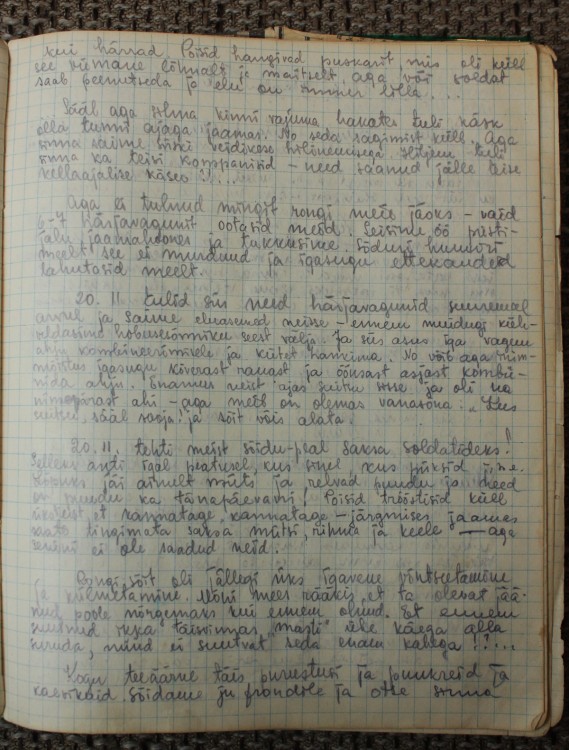 kui härrad. Poisid hangivad puskarit, mis oli küll
see viimane lõhnalt ja maitselt, aga või soldat
saab peenutseda ja elu on ilma lilla...
Sääl aga silma kinni vajuma hakates tuli käsk
olla tunni ajaga jaamas. No seda sagimist küll. Aga
sinna saime siiski hilinemisega. Hiljem tuli
sinna ka teisi kompaniisid – need saanud jälle õise
kellaajalise käsu!?...
Aga ei tulnud mingit rongi meie jaoks – vaid
6-7 härjavagunit ootasid meid. Seisime öö püsti-
jalu jaamahoones ja tukkusime. Sõduri huumori
meelt see ei murdnud ja igasugu ettekanded
lahutasid meelt.
20. II. tulid siis need härjavagunid suuremal
arvul ja saime eluasemed neisse – ennem muidugi küh-
veldasime hobusesõnniku seest välja. Ja siis asus iga vagun
ahju kombineerimisele ja kütet hankima. No võib aga inim-
mõistus igasugu kõverast rauast ja õõnsast asjast kombi-
nida ahju. Enamus neist ajas suitsu sisse ja oli ka
nimepärast ahi – aga meil on olemas vanasõna: „Kus
suitsu, sääl sooja! ja sõit võis alata.
20. II. tehti meist sõidu-peal saksa soldatideks!
Selleks anti igal peatusel, kus sinel, kus püksid j.n.e.
jäi ainult mütsi ja relvad puudu ja need
on puudu ka tänapäevani! Poisid trööstisid küll
üksteist, et kannatage, kannatage – järgmises jaamas
tingimata saksa mütsi, rihma ja keele — aga
senini ei ole saadud neid.
Rongi sõit oli jällegi üks igavene võntsutamine
ja külmetamine. Mõni mees rääkis, et ta olevat jää-
nud poole nõrgemaks kui ennem olnud. Et ennem
suutnud ikka täisvinnas „masti" ühe käega alla
suruda, nüüd ei suutvat seda enam kahega!?...
Kogu teeäärne täis purustusi ja punkreid ja
kaevikaid. Sõidame ju frondile ja otse sinna